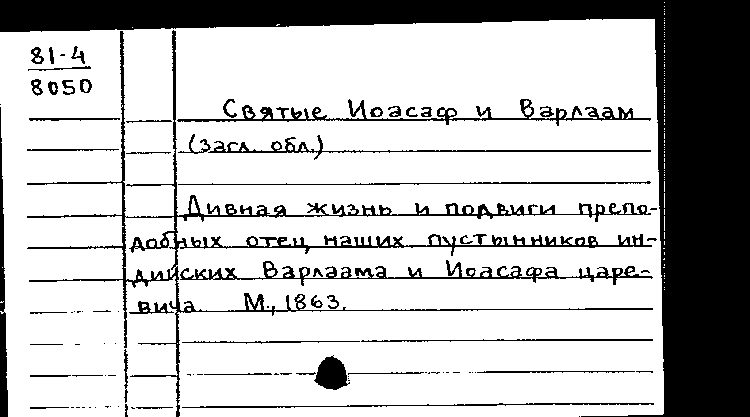 81-4
8050
Святые Иоасаф и Варлаам
(загл. обл.)
Дивная жизнь и подвиги препо-
добных отец наших пустынников ин-
дийских Варлаама и Иоасафа царе-
вича. М., 1863.